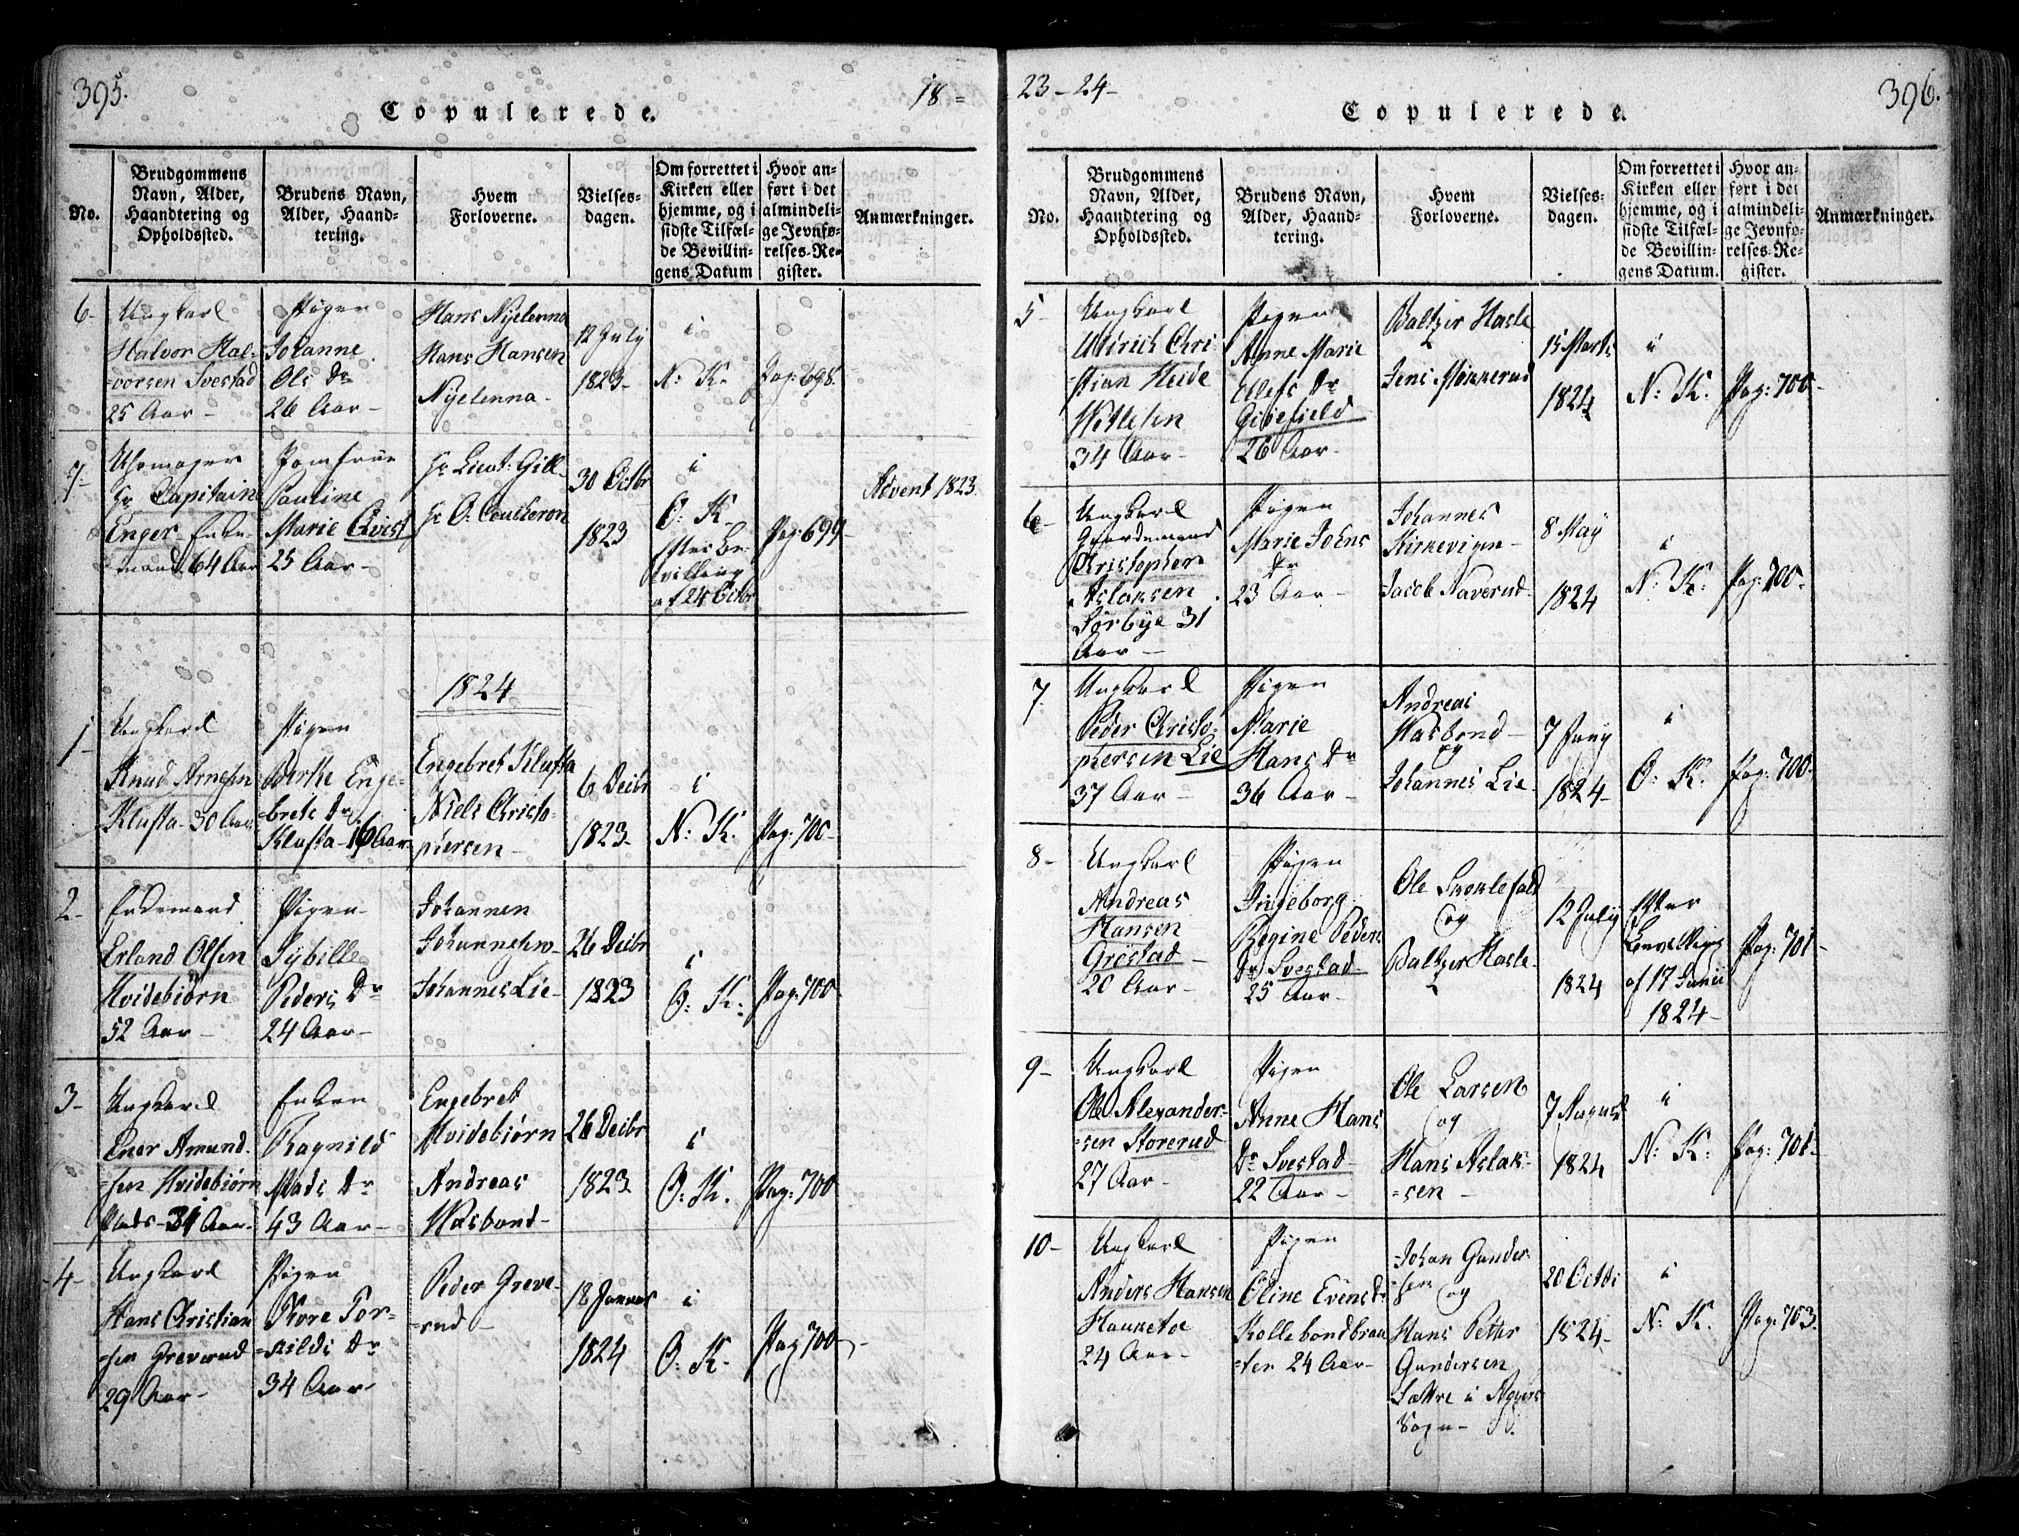 395.
18=
Copulerede.
No.
Brudgommens
Navn, Alder,
Haandtering og
Opholdssted.
Brudens Navn,
Alder, Haand-
tering.
Hvem
Forloverne.
Vielses-
dagen.
Om forrettet i
Kirken eller
hjemme, og i
sidste Tilfæl-
de Bevillin-
gens Datum
Hvor an-
ført i det
almindeli-
ge Jevnfø-
relses-Re-
gister.
Anmærkninger.
6-
Ungkarl
Halvor Hal-
vorsen Svestad
25 Aar-
Pigen
Johanne
Ols Dr
26 Aar-
Hans Nyelenna
Hans Hansen
Nyelenna-
12 July
1823-
i
N: K-
Pag: 698-
7-
Hr Capitain
Enger- Enke-
mand. 64 Aar
Jomfrue
Pauline
Marie Qvist
25 Aar-
Hr Lieut: Gill-
Hr O: Coucheron
30 Octbr
1823
i
O: K-
efter Be-
villing
af 24 Octbr
Pag: 699-
Advent 1823.
1824
1-
Ungkarl
Knud Arnesen
Klufta- 30 Aar
Pigen
Berthe Enge-
brets Dr
Klufta- 16 Aar-
Engebret Klufta
Niels Christo-
phersen-
6 Decbr
1823-
i
N: K.
Pag: 700-
2-
Enkemand
Erland Olsen
Hvidebiørn
52 Aar-
Pigen-
Sybille
Peders Dr
24 Aar-
Johannen
Johannesen
Johannes Lie-
26 Decbr
1823
i
O: K.
Pag: 700-
3-
Ungkarl
Ener Amund-
sen Hvidebiørn
Plads- 31 Aar-
Enken
Ragnild
Mads Dr
43 Aar-
Engebret
Hvidebiørn
Andreas
Wasbond-
26 Decbr
1823
i
O: K.
Pag: 700
4-
Ungkarl
Hans Christian
sen Greverud
29 Aar-
Pigen
Kore Tor-
kilds Dr
34 Aar-
Peder Greve-
rud-
18 Januar
1824
i
O: K.
Pag: 700-
23-24-
396.
Copulerede.
No.
Brudgommens
Navn, Alder,
Haandtering og
Opholdssted.
Brudens Navn,
Alder, Haand-
tering.
Hvem
Forloverne.
Vielses-
dagen.
Om forrettet i
Kirken eller
hjemme, og i
sidste Tilfæl-
de Bevillin-
gens Datum.
Hvor an-
ført i det
almindeli-
ge Jevnfø-
relses-Re-
gister.
Anmærkninger.
5-
Ungkarl
Uldrich Chri-
stian Heide
Wettesen
34 Aar-
Pigen
Anne Marie
Ellefs Dr
Gibefield
26 Aar-
Baltzer Hasle
Jens Monkerud
15 Marts
1824
i
N: K.
Pag: 700-
6-
Ungkarl
Gaardmand
Christopher
Aslaksen
Sørbye 31
Aar-
Pigen
Marie Johns
Dr
23 Aar-
Johannes
Kirkevigen-
Jacob Naverud-
8 May
1824
i
N: K-
Pag: 700-
7.
Ungkarl
Peder Christo-
phersen Lie
37 Aar-
Pigen
Marie
Hans Dr
36 Aar-
Andreas
Wasbond-
og
Johannes Lie-
7 Juny
1824-
i
O: K.
Pag: 700-
8-
Ungkarl
Andreas
Hansen
Grøstad-
20 Aar-
Pigen
Indeborg
Regine Peders
Dr Svestad-
25 Aar-
Ole Skoklefald
og
Baltzer Hasle-
12 July
1824
efter
Bevelling
af 17 Junii
1824-
Pag: 701-
9-
Ungkarl
Ole Alexander-
sen Storerud
27 Aar-
Pigen
Anne Hans
Dr Svestad-
22 Aar-
Ole Larsen
og
Hans Aslak-
sen-
7 August
1824
i
N: K-
Pag: 701-
10-
Ungkarl
Anders Hansen
Haunetoe
24 Aar-
Pigen
Oline Evens Dr
Kollebondbrau
ten 24 Aar-
Johan Gunder-
sen og
Hans Petter
Gundersen
Sættre i Agers
Sogn-
20 Octbr
1824-
i
N: K.
Pag: 703.